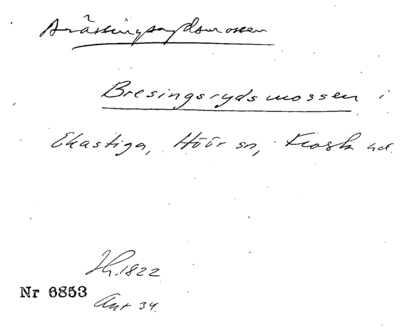 Brässingsrydsmossen
Bresingsrydsmossen i
Ekastiga, Höör sn, Frosta hd.
Jh. 1822
Nr 6853
Akt 34.